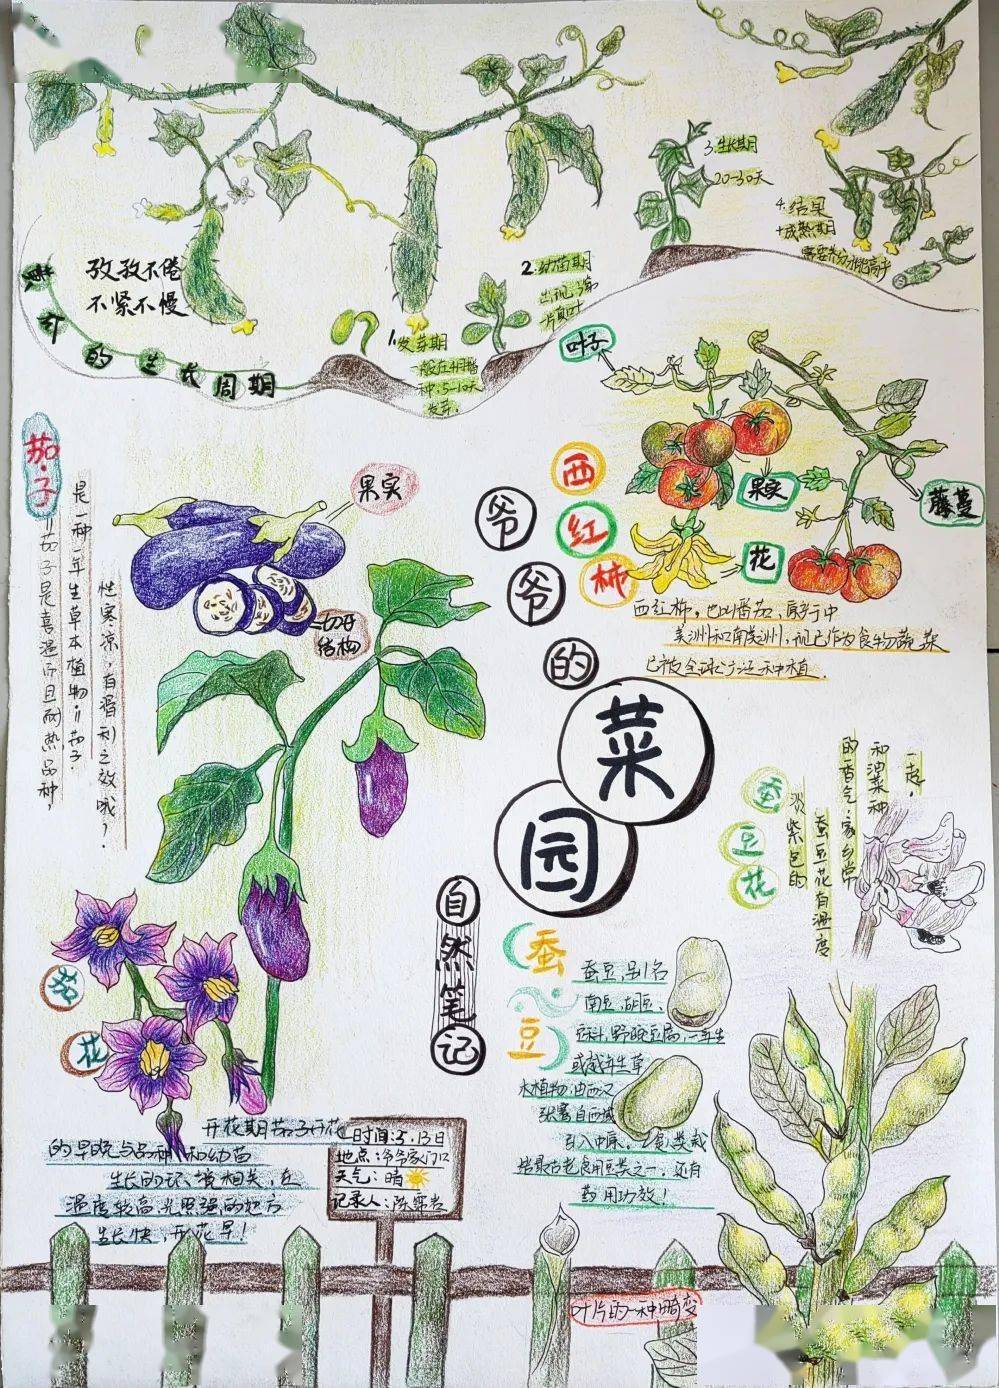 孜孜不倦
不紧不慢
的生长周期
1.发芽期
一般在4月播
种.5-10天
发芽.
2.幼苗期
出现第
一片真叶
3.生长期
20-30天
4.结果
+成熟期
茄子
是一种一年生草本植物=茄子.
=茄子是喜温而且耐热品种,
性寒凉,有滑利之效哦!
果实
=切开
结构
茄
花
开花期茄子开花
的早晚与品种和幼苗
生长的环境相关,在
温度较高光照强的地方
生长快,开花早!
时间:5.13日
地点:爷爷家门口
天气:晴
爷爷的菜园
自然笔记
西红柿
叶子
果实
花
藤蔓
西红柿,也叫番茄,原产中
美洲和南美洲.现已作为食物蔬菜
已被全球广泛种植.
蚕豆花
淡紫色的
蚕豆花有温度
的香气.家乡常
和油菜种
一起,
蚕豆
蚕豆,别名
南豆、胡豆、
豆科,野豌豆属,一年生
或越年生草
本植物.由西汉
张骞自西域
引入中原、
培最古老食用豆类之一.还有
药用功效!
叶片的一种畸变